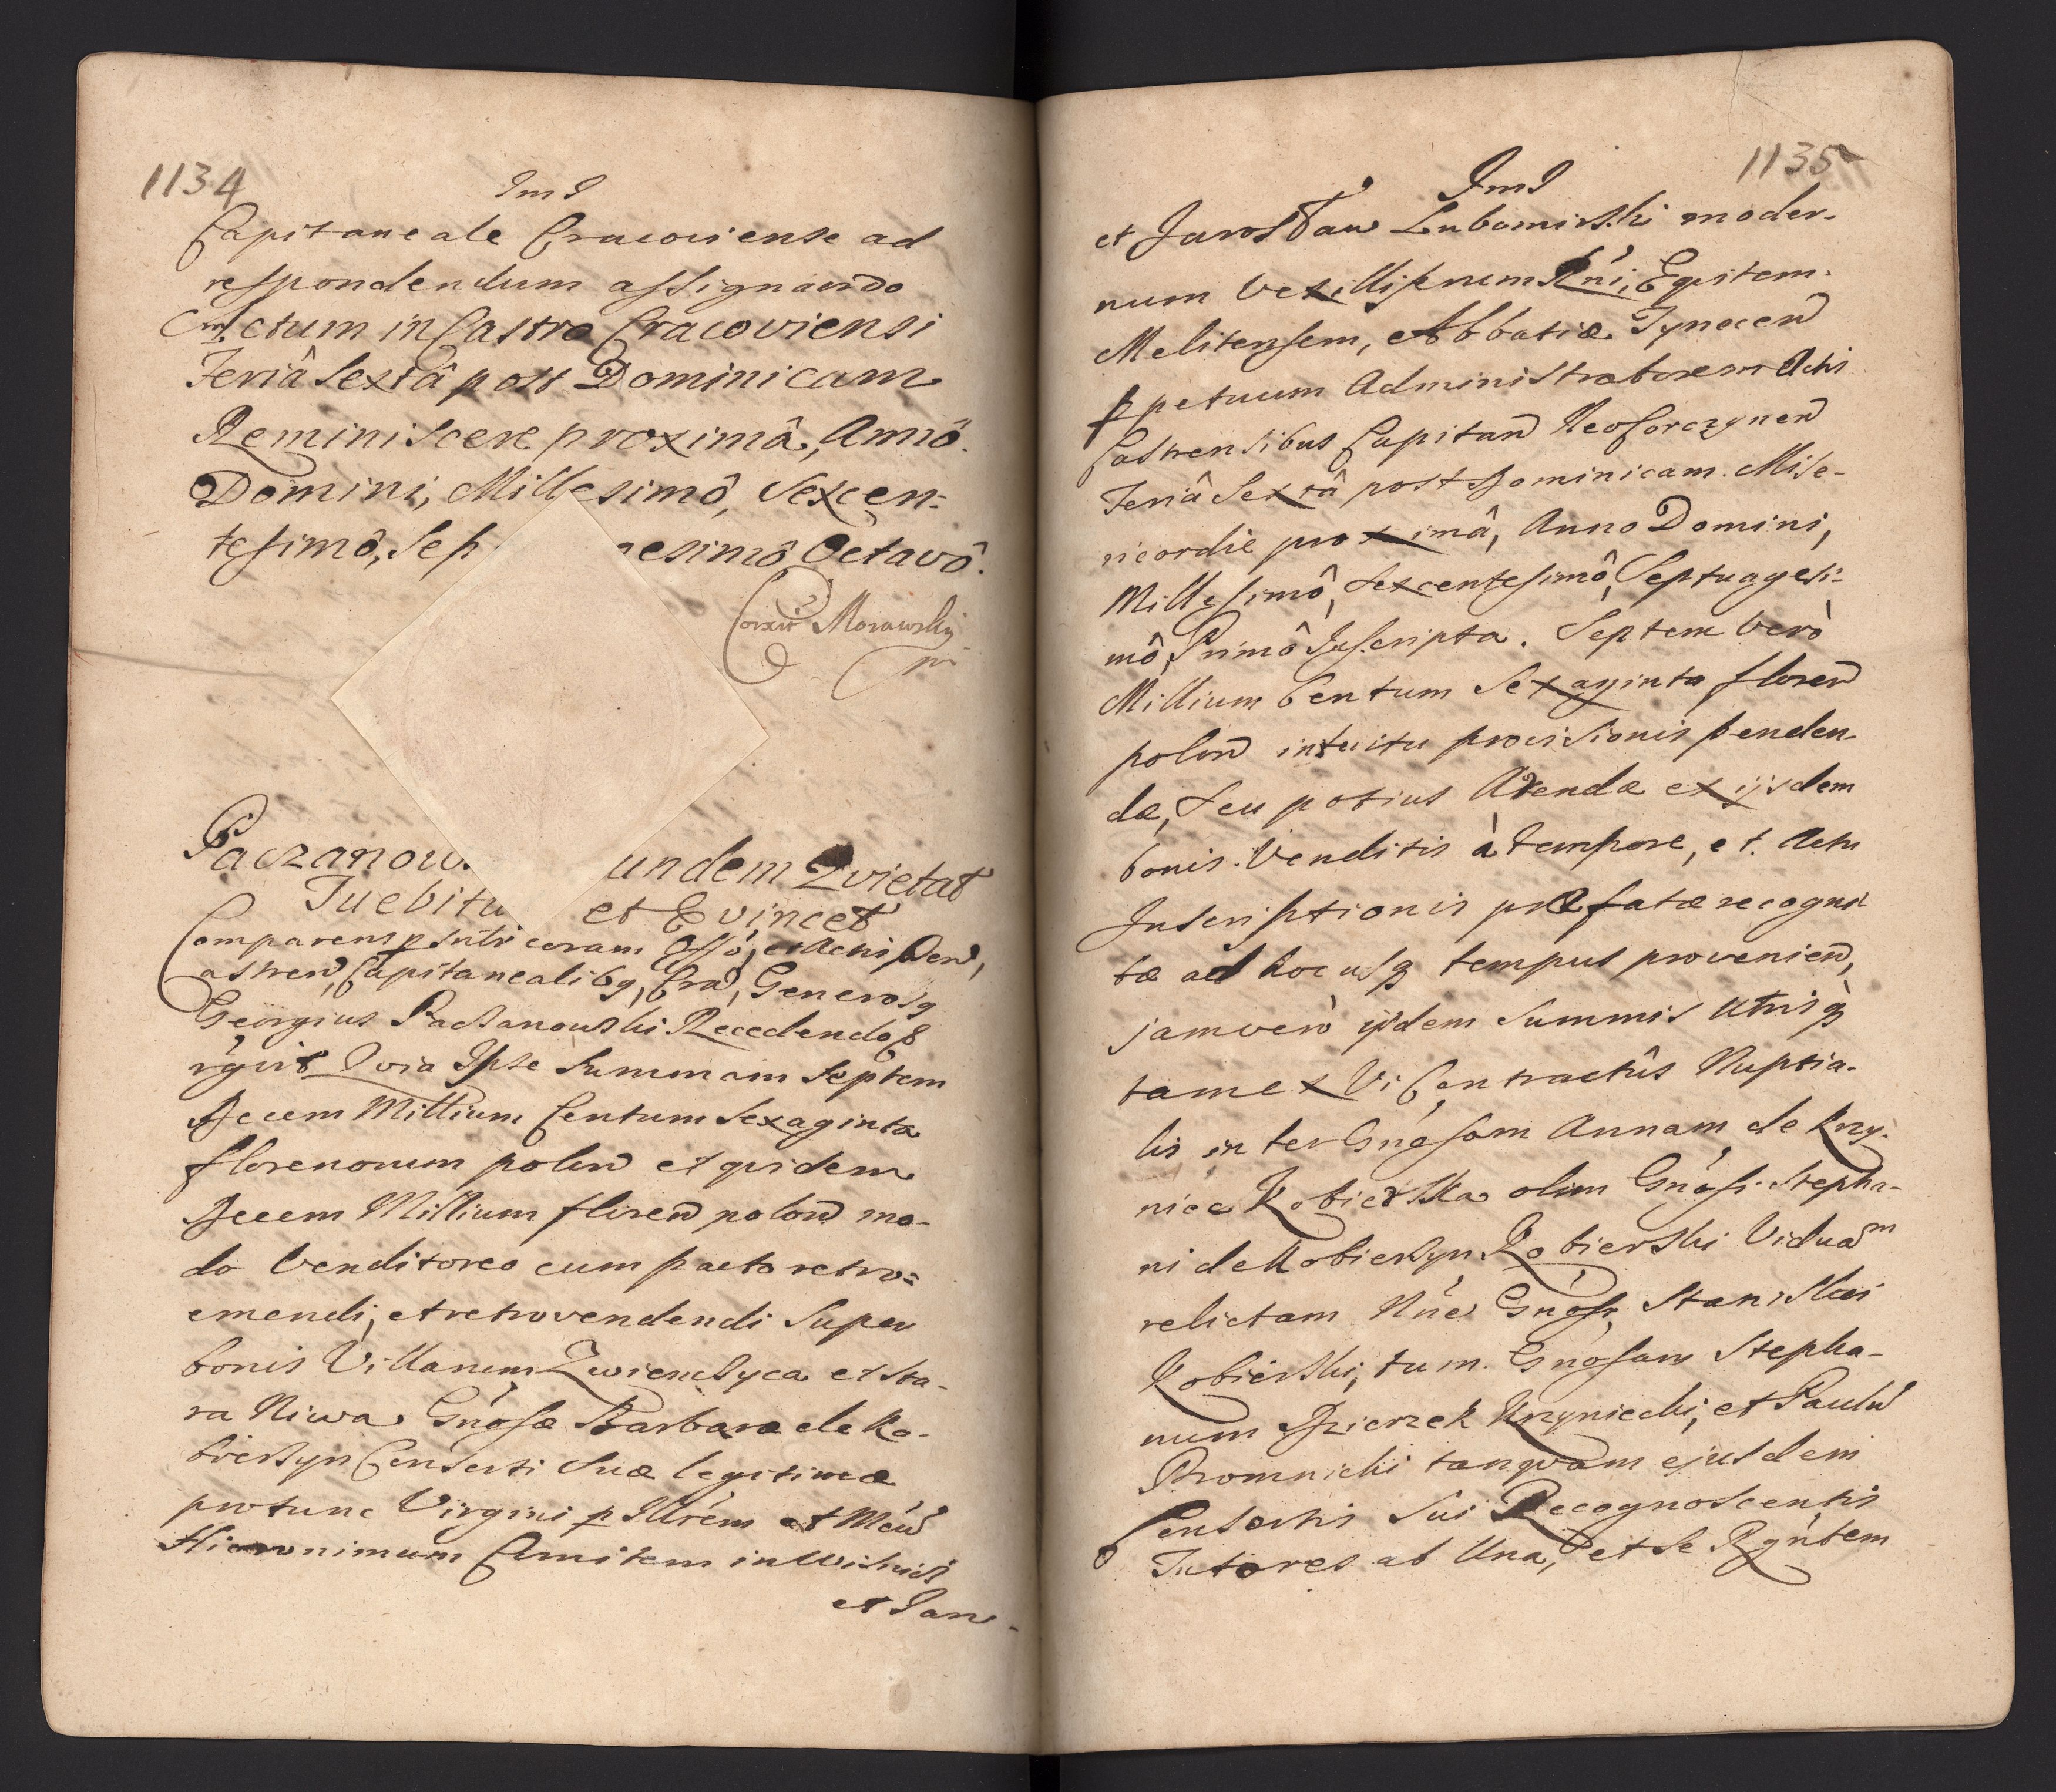 1134
ImI
Capitaneale Cracoviense ad
respondendum assignando
Actum in Castro Cracoviensi
Feriâ Sextâ post Dominicam
Reminiscere proximâ, Annô
Domini, Millesimô, Sexcen-
tesimô, Sep esimô Octavô.
Morawsky
Paczanow undem Qvietat
Tuebitu et Evincet
Comparens psntr coram Offô, et Actis
Castren, Capitanealibq, Cra, Generosq
Georgius Paczanowski Recedendo
rgvit Qvia Ipse Summam Septem
Decem Millium Centum Sexaginta
florenorum polon et qvidem
Decem Millium floren polon mo-
do Venditoreo cum pacto retro=
emendi, et retrovendendi Super
bonis Villarum Zwienczyca et Sta-
ra Niwa Gnosæ Barbaræ de Ko-
bierzyn Consorti Suæ legitimæ
protunc Virgini p Illrem et Mcum
Hieronimum Comitem in Wisnicz
et Jaro-
1135
ImI
et Jarosław Lubomirski moder-
num Vexilliferum Rni, Eqvitem
Melitensem, Abbatiæ Tynecen
ppetuum Administratorem Actis
Castrensibus Capitan Neoforczynen
Feriâ Sextâ post Dominicam Mise-
ricordie proximâ, Anno Domini,
Millesimô, Sexcentesimô, Septuagesi-
mô, Primô Inscripta. Septem Verò
Millium Centum Sexaginta floren
polon intuitu provisionis penden-
dæ, Seu potius Arendæ ex ijsdem
bonis Venditis à tempore, et Actu
Inscriptionis præfatæ recogni
tæ ad hoc usq tempus provenien,
jam verò ijsdem Summis Utrisq
tam ex Vi Contractûs Nuptia-
lis inter Gnosam Annam de Krzy-
nice Kobierska olim Gnosi Stepha-
ni de Kobierzyn Kobierski Viduam
relictam Nne Gnosi Stanislai
Kobierski, tum Gnosam Stepha-
num Dzierzek Krzyniecki, et Paulu
Promnicki tanqvam ejusdem
Consortis Sui Recognoscentis
Tutores ab Una, et Se Rgntem